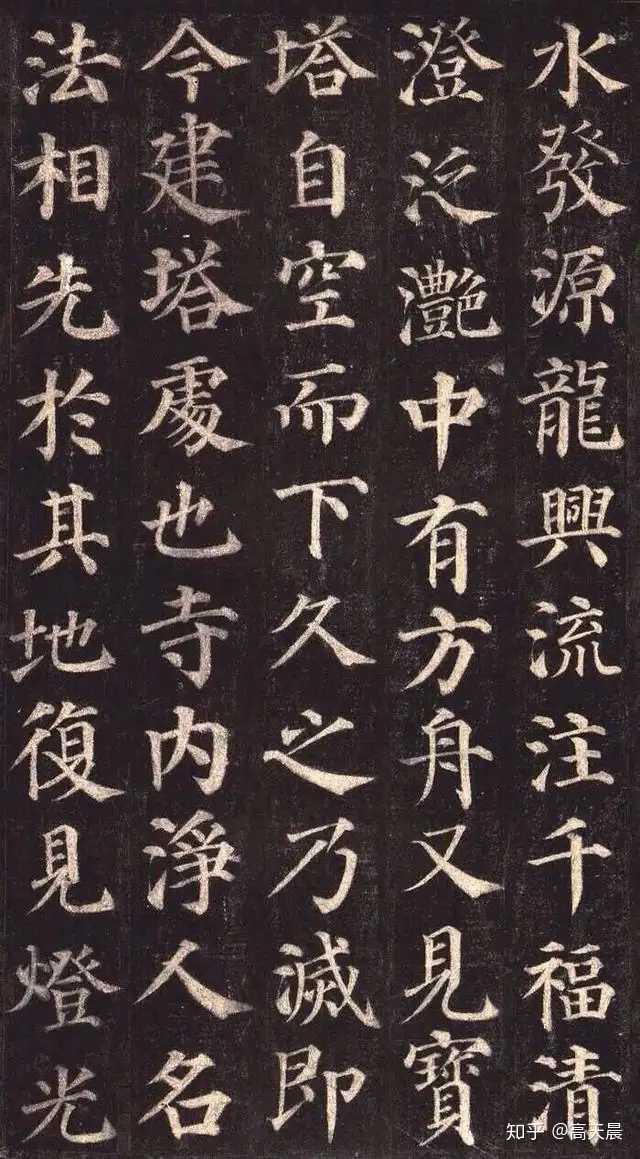 水發源龍興流注千福清
澄泛灩中有方舟又見寶
塔自空而下久之乃滅即
今建塔處也寺内淨人名
法相先於其地復見燈光
知乎 @高天晨